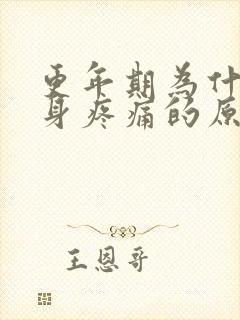 更年期為什
身疼痛的原
王恩哥